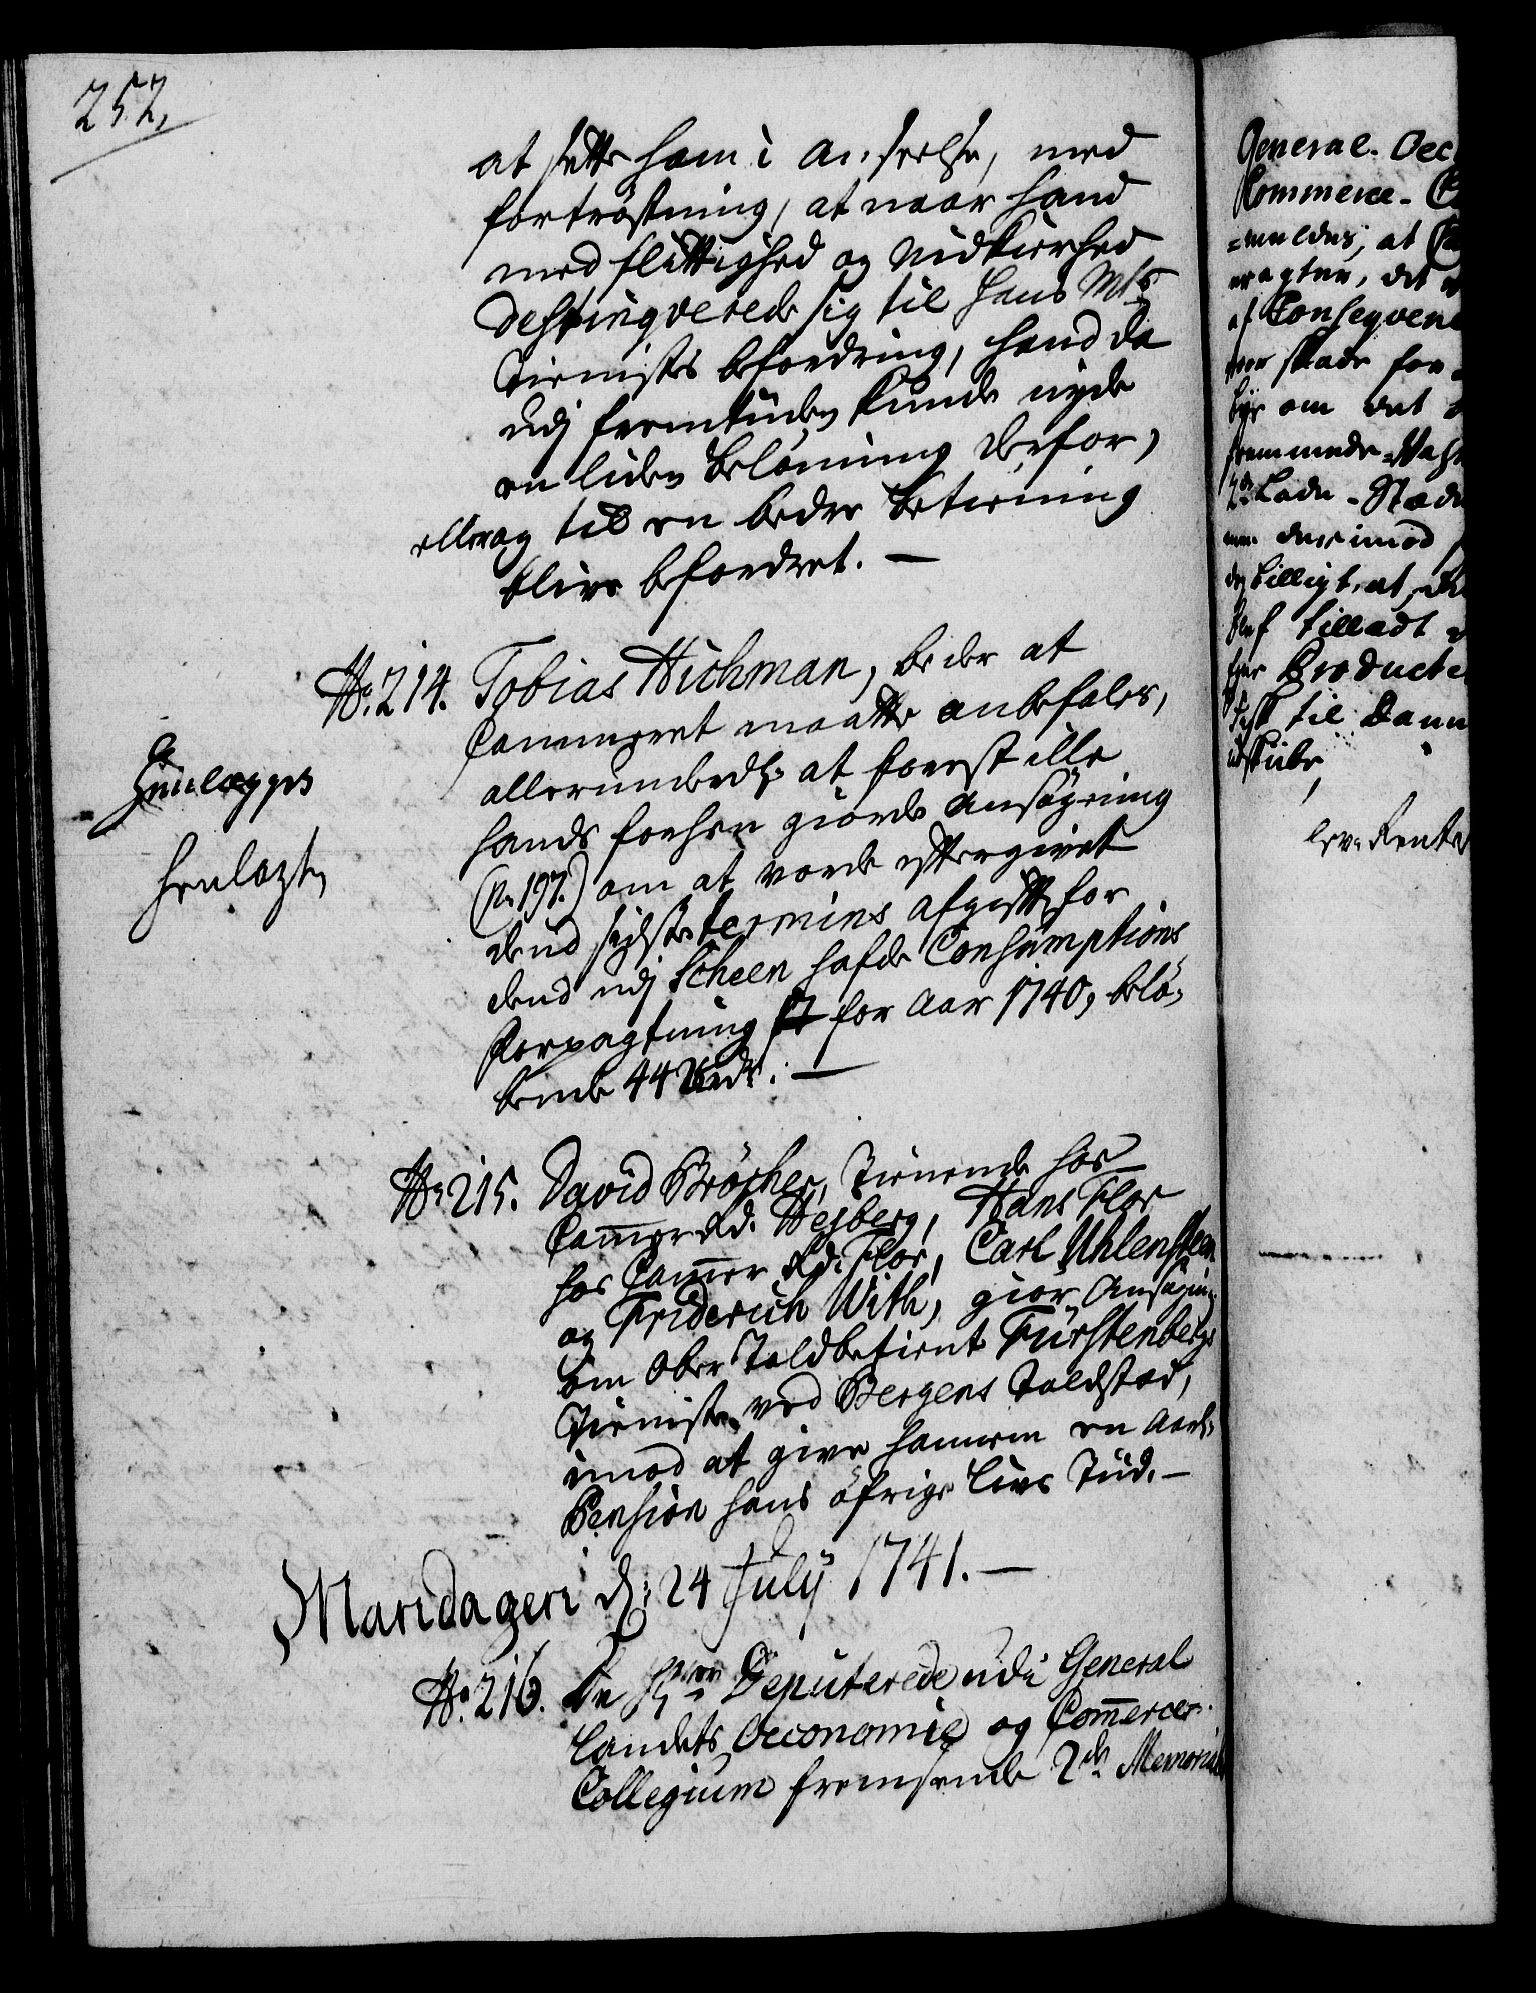 252,
at sætte ham i anseelse, med
fortröstning, at naar hand
med flittighed og Nidkierhed
destingverede sig til Hans Mts
Tienistes befordring, hand da
udj fremtiiden kunde nyde
en liden belönning derfor,
eller og til en bedre betiening
blive befordret. —
No. 214. Tobias Wichman, beder at
Cammeret maatte anbefales,
allerunderds: at forestille
hands forhen giorde Ansögning
(N. 197.) om at vorde eftergivet
dend sidste termins afgift for
dend udj Scheen hafde Consumptions
Forpagtning for Aar 1740, belö-
bende 442 Rdr: —
Henlegges
henlagt
No. 215. David Bröcher, Tienende hos
Cammer Rd. Hejberg, Hans Flor
hos Cammer Rd: Flor, Carl Uhlensteen
og Friderich With, giör Ansögning
om Ober Toldbetient Fürstenbergs
Tieniste ved Bergens Toldsted,
imod at give hannem en Aarl:
Pension hans öfrige Livs Tiid. —
Mandagen d: 24 Julij 1741. —
No. 216. De Hrer Deputerede udi General
Landets Oeconomie og Commerce
Collegium fremsende 2de Memorial
General. Oec
Commerce- C
=meldes, at
eragter, det
af Conseqvence
stor skade for
bÿe om det
fremmede Vahre
2de Lade-Stæder
men derimod
og billigt, at de
tilladt
Producte
fisk til Dann
udskibe,